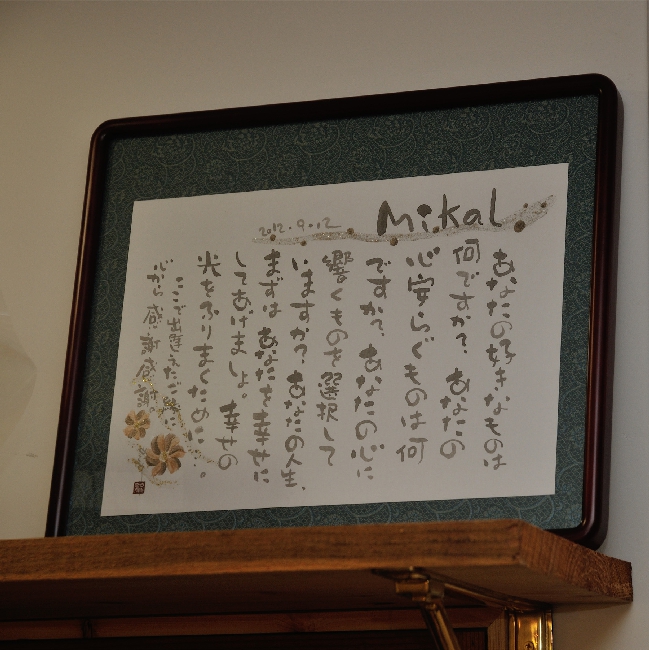 Mikal
2012.9.12
あなたの好きなものは
何ですか？あなたの
心安らぐものは何
ですか？あなたの心に
響くものを選択して
いますか？あなたの人生、
まずはあなたを幸せに
してあげましょ。幸せの
光をふりまくために…。
ここで出逢えたご縁に
心から感謝感謝。